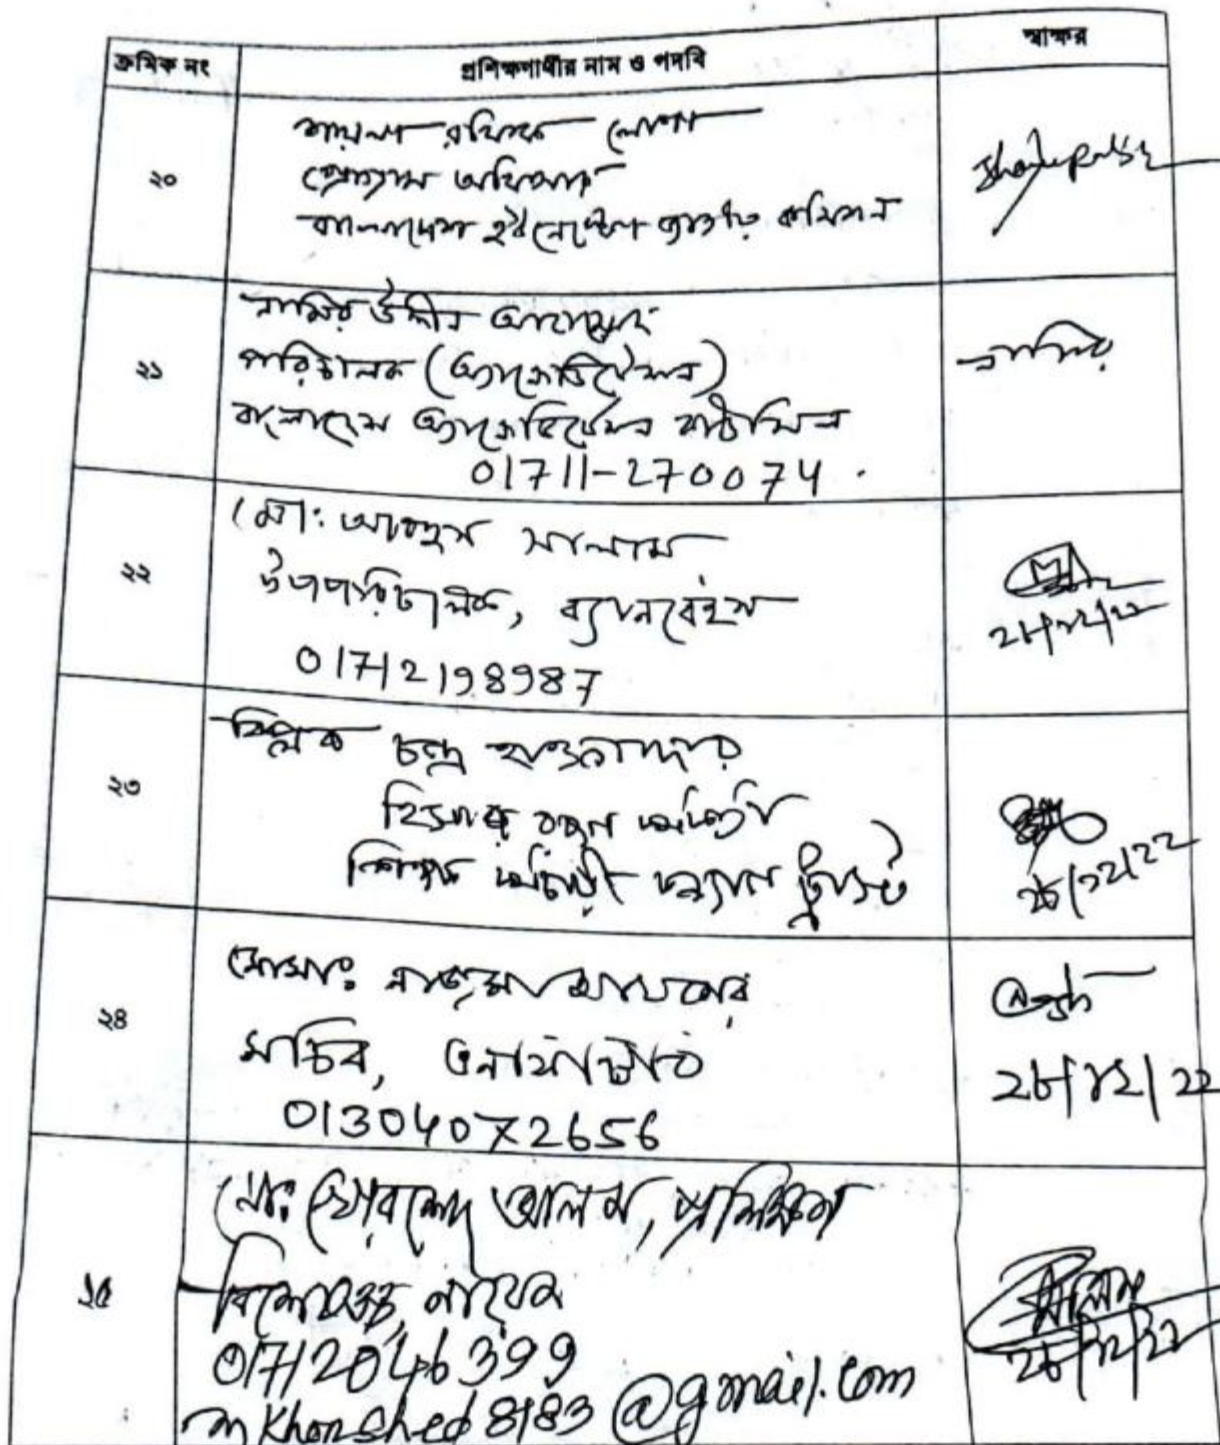 ক্রমিক নং প্রশিক্ষণার্থীর নাম ও পদবি স্বাক্ষর
২০
রফিক
প্রোগ্রাম অফিসার
বাংলাদেশ ইউনেস্কো জাতীয় কমিশন
২১
নাসির উদ্দীন আহাম্মেদ
পরিচালক (অ্যাক্রেডিটেশন)
বাংলাদেশ অ্যাক্রেডিটেশন কাউন্সিল
01711-270074
নাসির
২২
মো: আবদুস সালাম
উপপরিচালক, ব্যানবেইস
01712198987
26/12/22
২৩
চন্দ্র হাওলাদার
হিসাব রক্ষণ কর্মকর্তা
শিক্ষক কর্মচারী কল্যাণ ট্রাস্ট
26/12/22
২৪
মোসাঃ নাজমা আখতার
সচিব, এনটিআরসিএ
01304072656
26/12/22
২৫
মোঃ খোরশেদ আলম, প্রশিক্ষণ
বিশেষজ্ঞ, নায়েম
01712046399
mkhorshed8183@gmail.com
26/12/22